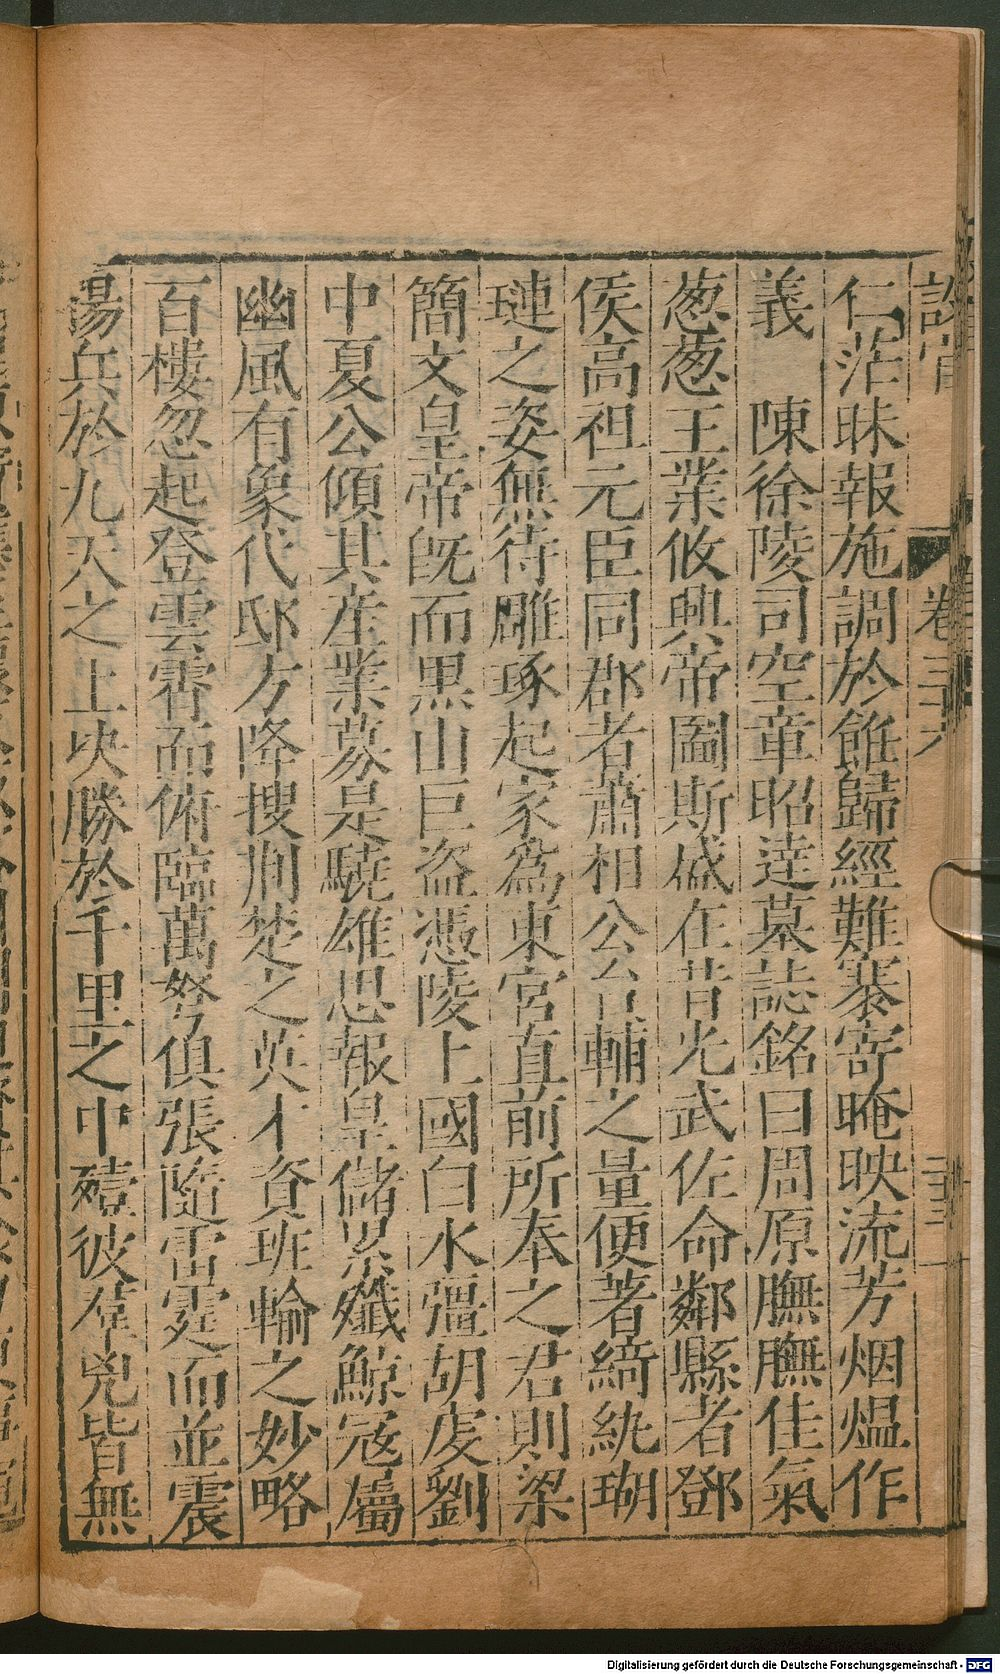 仁茫昧報施調於餙歸經難褰寄晻映流芳烟熅作
義　陳徐陵司空章昭達墓誌銘曰周原膴膴佳氣
葱葱王業攸興帝圖斯盛在昔光武佐命鄰縣者鄧
侯高祖元臣同郡者蕭相公台輔之量便著綺紈瑚
璉之姿無待雕琢起家爲東宮直前所奉之君則梁
簡文皇帝旣而黒山巨盜憑陵上國白水彊胡虔劉
中夏公傾其産業募是驍雄思報皇儲累殲鯨寇屬
幽風有象代邸方降搜荆楚之英才資班輸之妙略
百樓忽起登雲霄而俯臨萬弩俱張隨雷霆而並震
湯兵於九天之上決勝於千里之中殪彼羣兇皆無
卷三十六
二十三
Digitalisierung gefördert durch die Deutsche Forschungsgemeinschaft - DFG